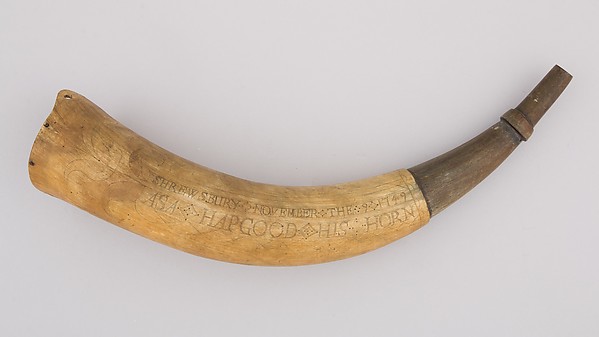 SHREWSBURY NOVEMBER THE 9 1749
ASA HAPGOOD HIS HORN